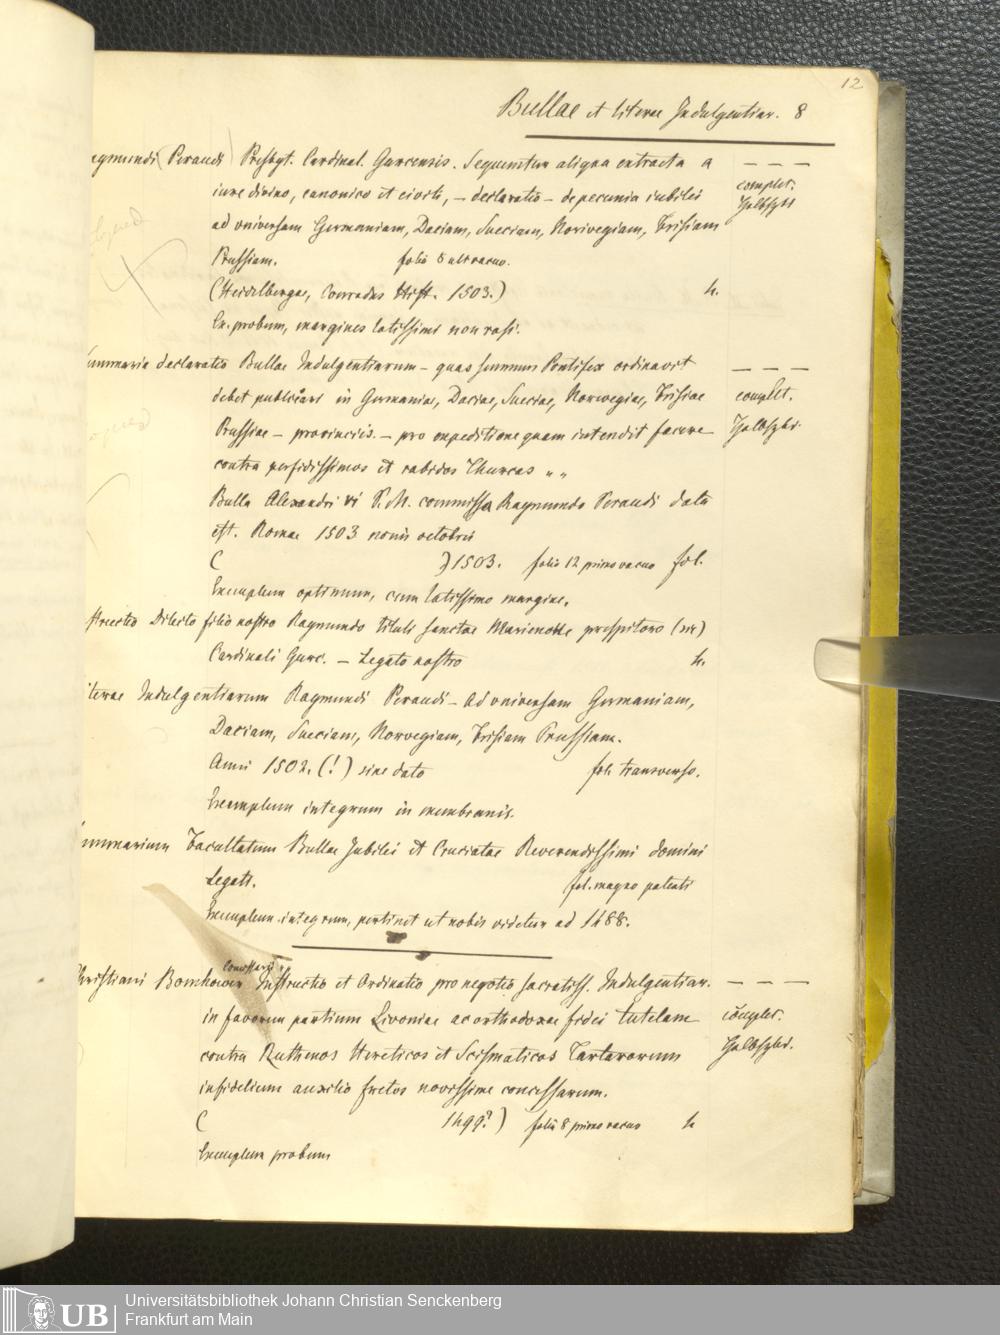 12
Bullae et literae Indulgentiar. 8
aymundi (Peraudi) Presbyt. Cardinal. Gurcensis. Sequuntur aliqua extracta a
iure divino, canonico et civili, – declaratio – de pecunia iubilei
ad universam Germaniam, Daciam, Sueciam, Norivegiam, Frisiam
Prussiam. folia 8 ult vacuo.
(Heidelbergae, Conradus Hist. 1503.) 4.
Ex. probum, margines latissimi non rasi.
– – –
complet.
ummaria declaratio Bullae Indulgentiarum – quas summus Pontifex ordinavit
debet publicari in Germaniae, Daciae, Sueciae, Norwegiae, Frisiae
Prussiae – provinciis. – pro expeditione quam intendit facere
contra perfidissimos et rabidos Thurcas „ „
Bulla Alexandri VI P. M. commissa Raymundo Peraudi data
est. Romae 1503 nonis octobris
( ) 1503. folia 12 primo vacuo fol.
Exemplum optimum, cum latissimo margine.
– – –
complet.
structio Dilecto filio nostro Raymundo tituli sanctae Marienove presspitero (sic)
Cardinali Gurc. – Legato nostro 4.
iterae Indulgentiarum Raymundi Peraudi – ad universam Germaniam,
Daciam, Sueciam, Norvegiam, Frisiam Prussiam.
Anni 1502. (!) sine dato fol. transverso.
Exemplum integrum in membranis.
ummarium Facultatum Bullae Jubilei et Cruciatae Reverendissimi domini
Legati. fol. magno patenti
Exemplum integrum, pertinet ut nobis videtur ad 1488.
commissarii
hristiani Bomhower Instructio et Ordinatio pro negotio sacratiss. Indulgentiar.
in favorem partium Livoniae ac orthodoxae fidei tutelam
contra Ruthenos Hereticos et Scismaticos Tartarorum
infidelium auxilio fretos novissime concessarum.
( 1499?) folia 8 primo vacuo 4
Exemplum probum
– – –
complet.
UB
Universitätsbibliothek Johann Christian Senckenberg
Frankfurt am Main